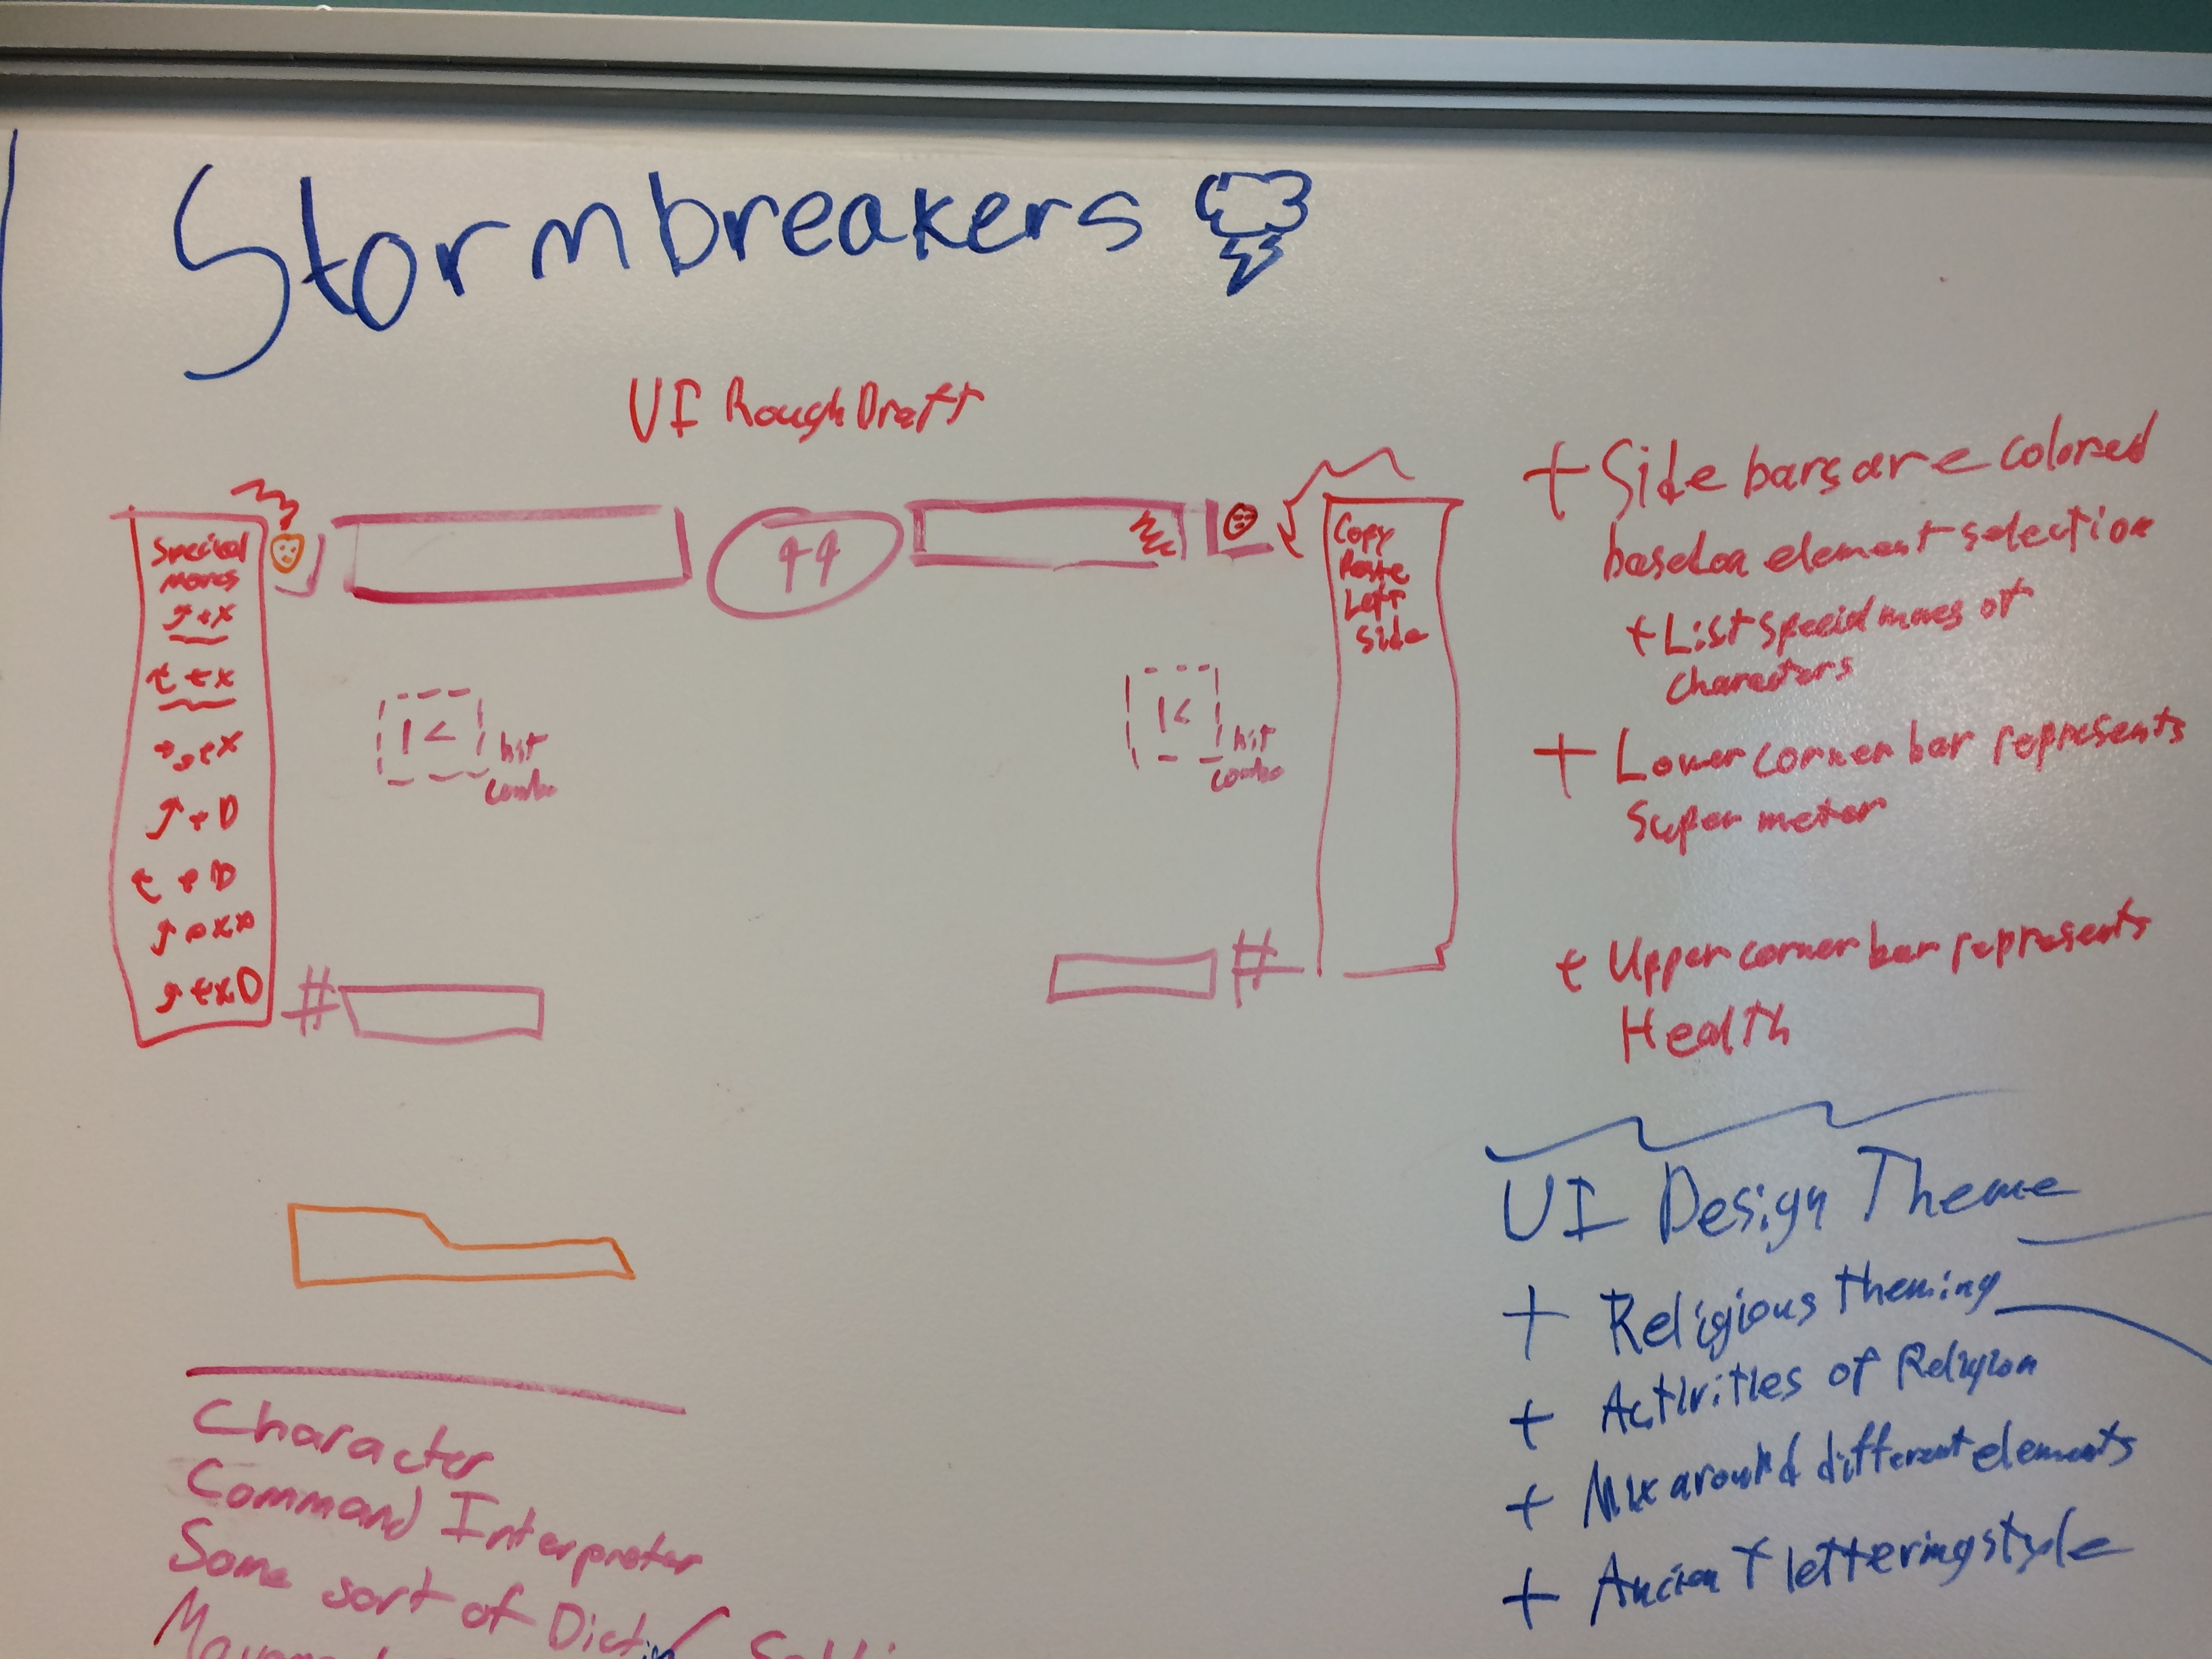 Stormbreakers
UI Rough Draft
Special
Moves
↑+X
←+X
↑+D
←+D
99
Copy
Paste
Left
Side
K
hit
combo
K
hit
combo
#
#
+ Side bars are colored
based on element selection
+ List special moves of
characters
+ Lower corner bar represents
Super meter
+ Upper corner bar represents
Health
UI Design Theme
+ Religious theming
+ Activities of Religion
+ Mix around different elements
+ Ancient lettering style
Character
Command Interpreter
Some sort of